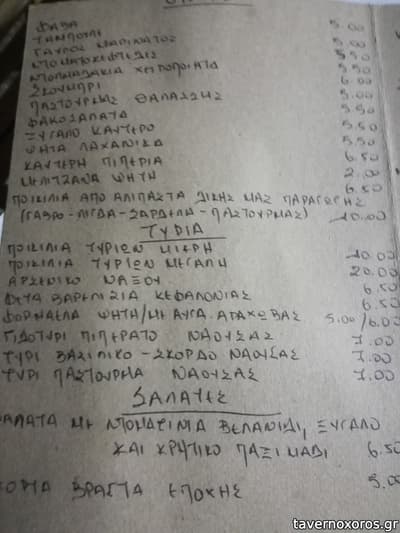 ΦΑΒΑ 5.00
ΤΑΜΠΟΥΛΙ
ΓΑΥΡΟΣ ΜΑΡΙΝΑΤΟΣ 5.00
ΝΤΟΜΑΤΟΚΕΦΤΕΔΕΣ 5.50
ΝΤΟΛΜΑΔΑΚΙΑ ΧΕΙΡΟΠΟΙΗΤΑ 5.50
ΣΚΟΥΜΠΡΙ 6.00
ΠΑΣΤΟΥΡΜΑΣ ΘΑΛΑΣΣΗΣ 5.00
ΦΑΚΟΣΑΛΑΤΑ 5.50
ΞΥΓΑΛΟ ΚΑΥΤΕΡΟ
ΨΗΤΑ ΛΑΧΑΝΙΚΑ 5.50
ΚΑΥΤΕΡΗ ΠΙΠΕΡΙΑ 6.50
ΜΕΛΙΤΖΑΝΑ ΨΗΤΗ 2.00
ΠΟΙΚΙΛΙΑ ΑΠΟ ΑΛΙΠΑΣΤΑ ΔΙΚΗΣ ΜΑΣ ΠΑΡΑΓΩΓΗΣ 6.50
(ΓΑΒΡΟ-ΛΙΓΔΑ-ΣΑΡΔΕΛΑ-ΠΑΣΤΟΥΡΜΑΣ) 10.00
ΤΥΡΙΑ
ΠΟΙΚΙΛΙΑ ΤΥΡΙΩΝ ΜΙΚΡΗ 10.00
ΠΟΙΚΙΛΙΑ ΤΥΡΙΩΝ ΜΕΓΑΛΗ 20.00
ΑΡΣΕΝΙΚΟ ΝΑΞΟΥ 6.50
ΦΕΤΑ ΒΑΡΕΛΙΣΙΑ ΚΕΦΑΛΟΝΙΑΣ 6.50
ΦΟΡΜΑΕΛΑ ΨΗΤΗ/ΜΕ ΑΥΓΑ ΑΡΑΧΩΒΑΣ 5.00/6.00
ΓΙΔΟΤΥΡΙ ΠΙΠΕΡΑΤΟ ΝΑΟΥΣΑΣ 7.00
ΤΥΡΙ ΒΑΣΙΛΙΚΟ-ΣΚΟΡΔΟ ΝΑΟΥΣΑΣ 7.00
ΤΥΡΙ ΠΑΣΤΟΥΡΜΑ ΝΑΟΥΣΑΣ 7.00
ΣΑΛΑΤΕΣ
ΣΑΛΑΤΑ ΜΕ ΝΤΟΜΑΤΙΝΙΑ ΒΕΛΑΝΙΔΙ, ΞΥΓΑΛΟ
ΚΑΙ ΚΡΗΤΙΚΟ ΠΑΞΙΜΑΔΙ 6.50
ΧΟΡΤΑ ΒΡΑΣΤΑ ΕΠΟΧΗΣ 5.00
tavernoxoros.gr